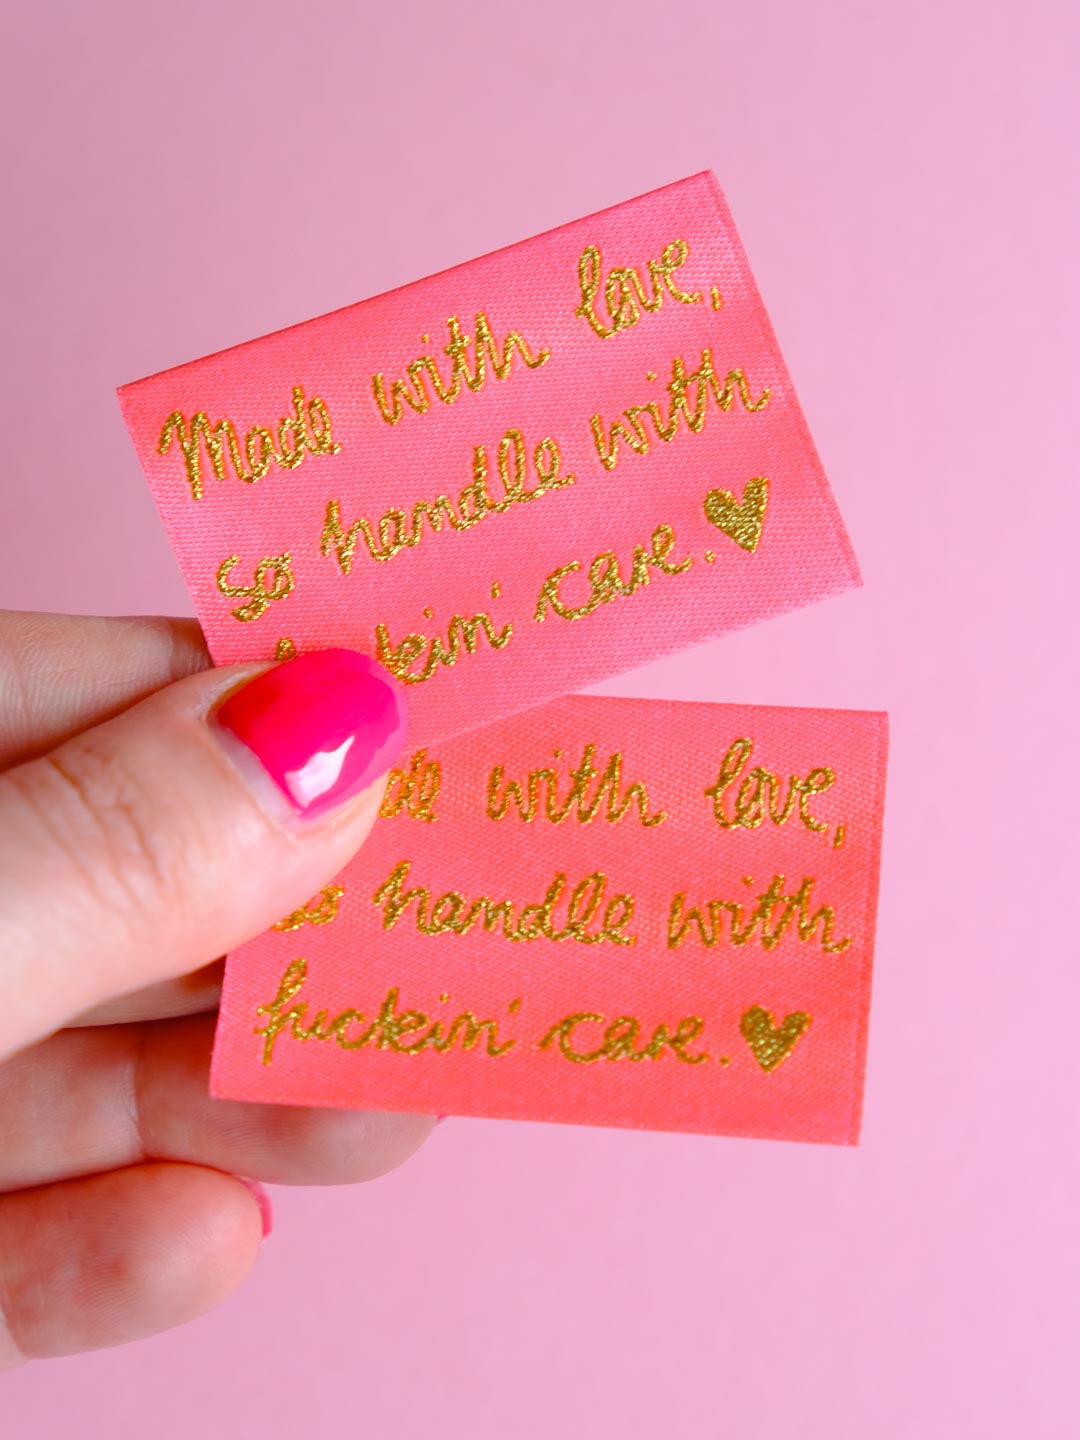 Made with love,
so handle with
kin' care. ♥
with love,
handle with
fuckin' care. ♥